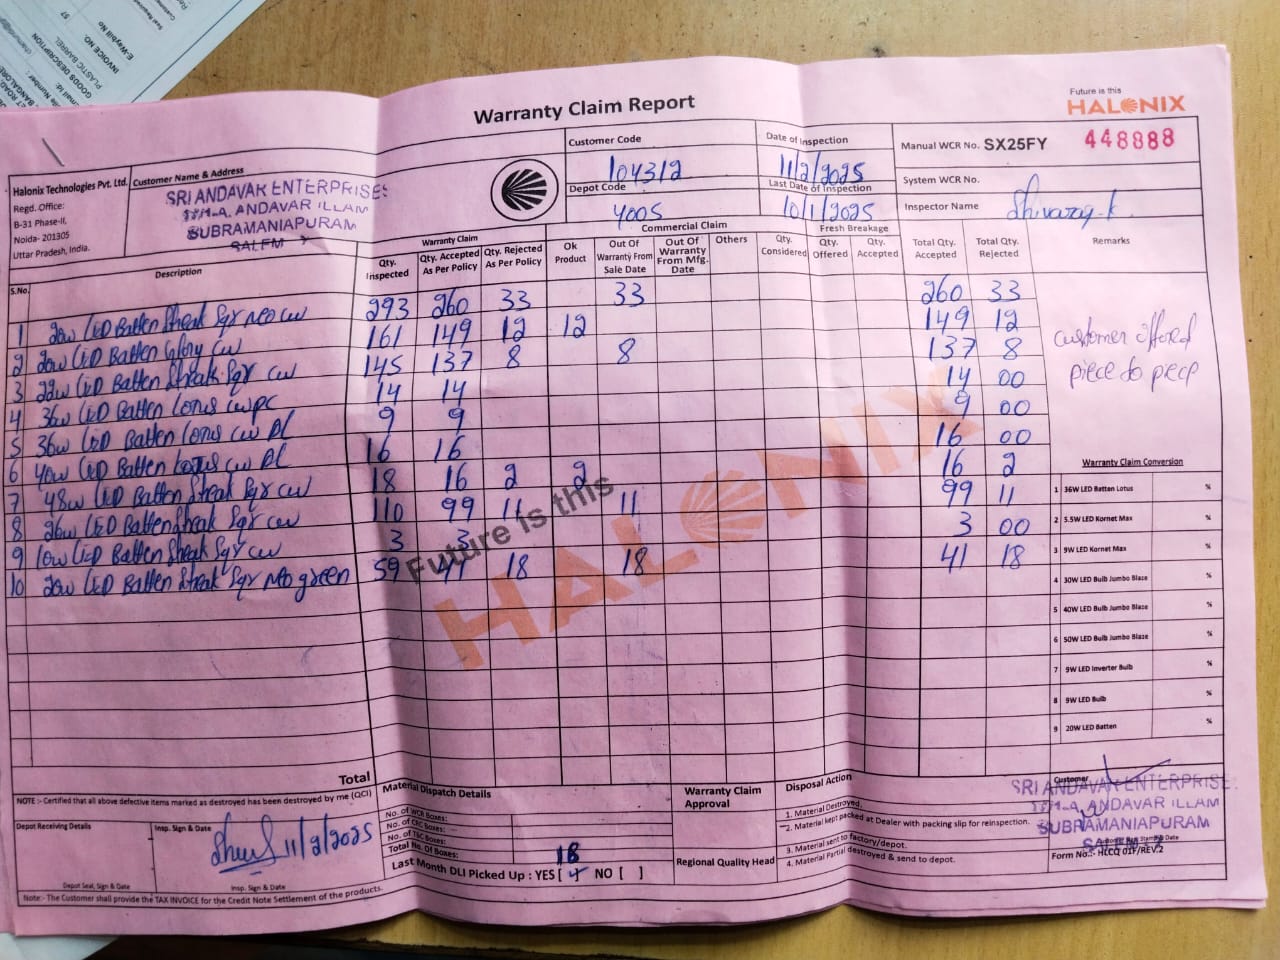 57
E-Waybill No
INVOICE NO.
PLASTIC BARREL
GOODS DESCRIPTION
Warranty Claim Report
Future is this
HALONIX
Halonix Technologies Pvt. Ltd.
Regd. Office:
B-31 Phase-II,
Noida- 201305
Uttar Pradesh, India.
Customer Name & Address
SRI ANDAVAR ENTERPRISES
ANDAVAR ILLAM
SUBRAMANIAPURAM
SALEM
Customer Code
104312
Depot Code
4005
Date of Inspection
11/2/2025
Last Date of Inspection
10/1/2025
Manual WCR No. SX25FY 448888
System WCR No.
Inspector Name Shivaraj-k
Warranty Claim Commercial Claim Fresh Breakage
S.No. Description Qty. Inspected Qty. Accepted As Per Policy Qty. Rejected As Per Policy Ok Product Out Of Warranty From Sale Date Out Of Warranty From Mfg. Date Others Qty. Considered Qty. Offered Qty. Accepted Total Qty. Accepted Total Qty. Rejected Remarks
1 20w LED Batten Streak Sqr neo cw 293 260 33 33 260 33
2 20w LED Batten Glory cw 161 149 12 12 149 12
3 22w LED Batten Streak Sqr cw 145 137 8 8 137 8
4 36w LED Batten Lotus cw pc 14 14 14 00
5 36w LED Batten Lotus cw Al 9 9 9 00
6 40w LED Batten Lotus cw Al 16 16 16 00
7 48w LED Batten Streak Sqr cw 18 16 2 2 16 2
8 26w LED Batten Streak Sqr cw 110 99 11 11 99 11
9 10w LED Batten Streak Sqr cw 3 3 3 00
10 20w LED Batten Streak Sqr neo green 59 41 18 18 41 18
customer offered
piece to piece
Future is this
HALONIX
Warranty Claim Conversion
1 36W LED Batten Lotus %
2 5.5W LED Kornet Max %
3 9W LED Kornet Max %
4 30W LED Bulb Jumbo Blaze %
5 40W LED Bulb Jumbo Blaze %
6 50W LED Bulb Jumbo Blaze %
7 9W LED Inverter Bulb %
8 9W LED Bulb %
9 20W LED Batten %
Total
NOTE :- Certified that all above defective items marked as destroyed has been destroyed by me (QCI)
Depot Receiving Details
Depot Seal, Sign & Date
Insp. Sign & Date
11/2/2025
Insp. Sign & Date
Material Dispatch Details
No. of WCR Boxes:
No. of CRC Boxes:
No. of TBC Boxes:
Total No. Of Boxes: 18
Last Month DLI Picked Up : YES [ ] NO [ ]
Warranty Claim Approval
Regional Quality Head
Disposal Action
1. Material Destroyed.
2. Material kept packed at Dealer with packing slip for reinspection.
3. Material sent to factory/depot.
4. Material Partial destroyed & send to depot.
Customer
SRI ANDAVAR ENTERPRISE
ANDAVAR ILLAM
SUBRAMANIAPURAM
Form No.:- HLCQ 01F/REV.2
Note:- The Customer shall provide the TAX INVOICE for the Credit Note Settlement of the products.